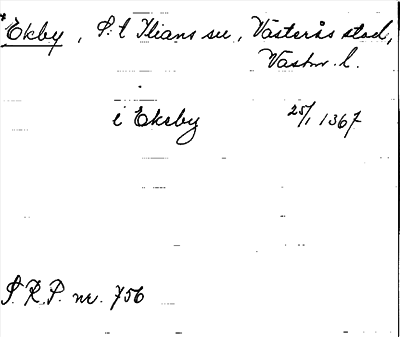 *Ekby, S:t Ilians sn, Västerås stad,
Vastm. l.
i Eksby 25/1 1367
S.R.P. nr. 756